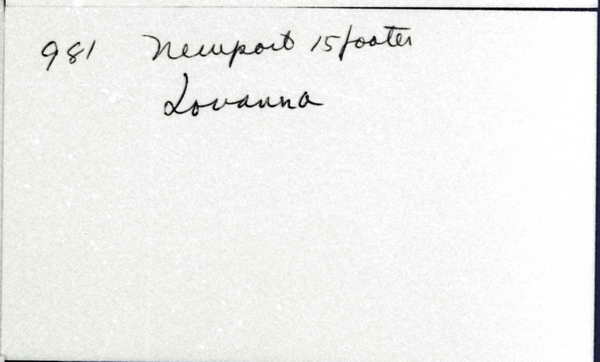 981 Newport 15 footer
Lovanna